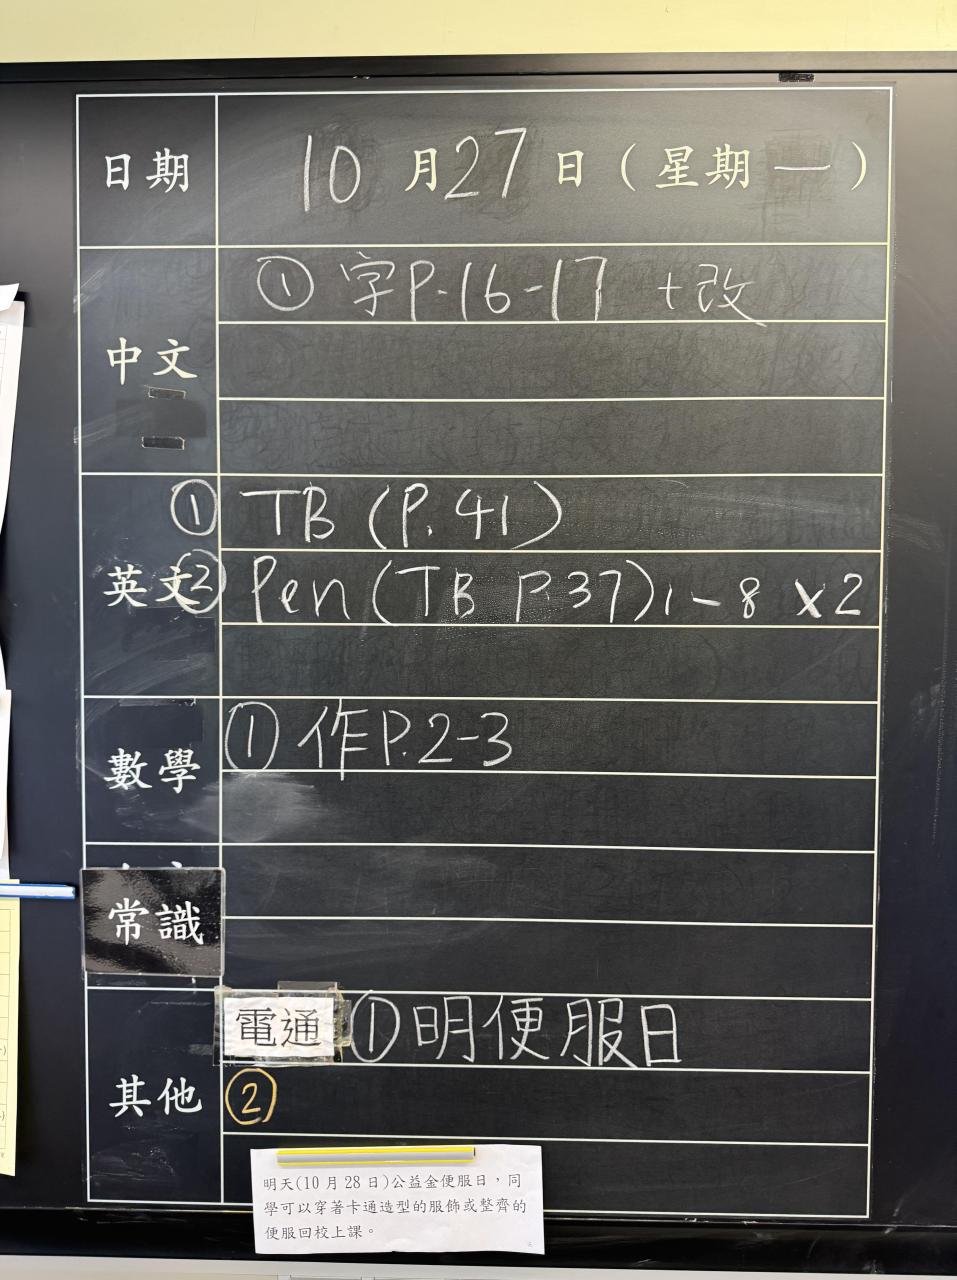 日期 10月27日（星期一）
① 字P.16-17 +改
中文
① TB (P.41)
英文 ② Pen (TB P.37) 1-8 x2
數學 ① 作P.2-3
常識
電通 ① 明便服日
其他 ②
明天(10月28日)公益金便服日，同
學可以穿著卡通造型的服飾或整齊的
便服回校上課。